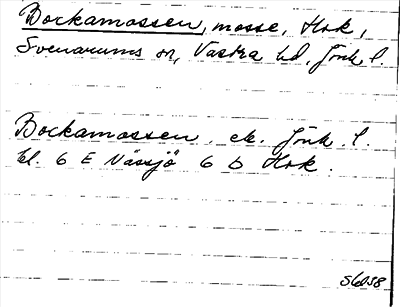 Bockamossen, mosse, Hok,
Svenarums sn, Västra hd, Jönk. l.
Bockamossen, ek. Jönk. l.
bl. 6 E Nässjö 6 b Hok.